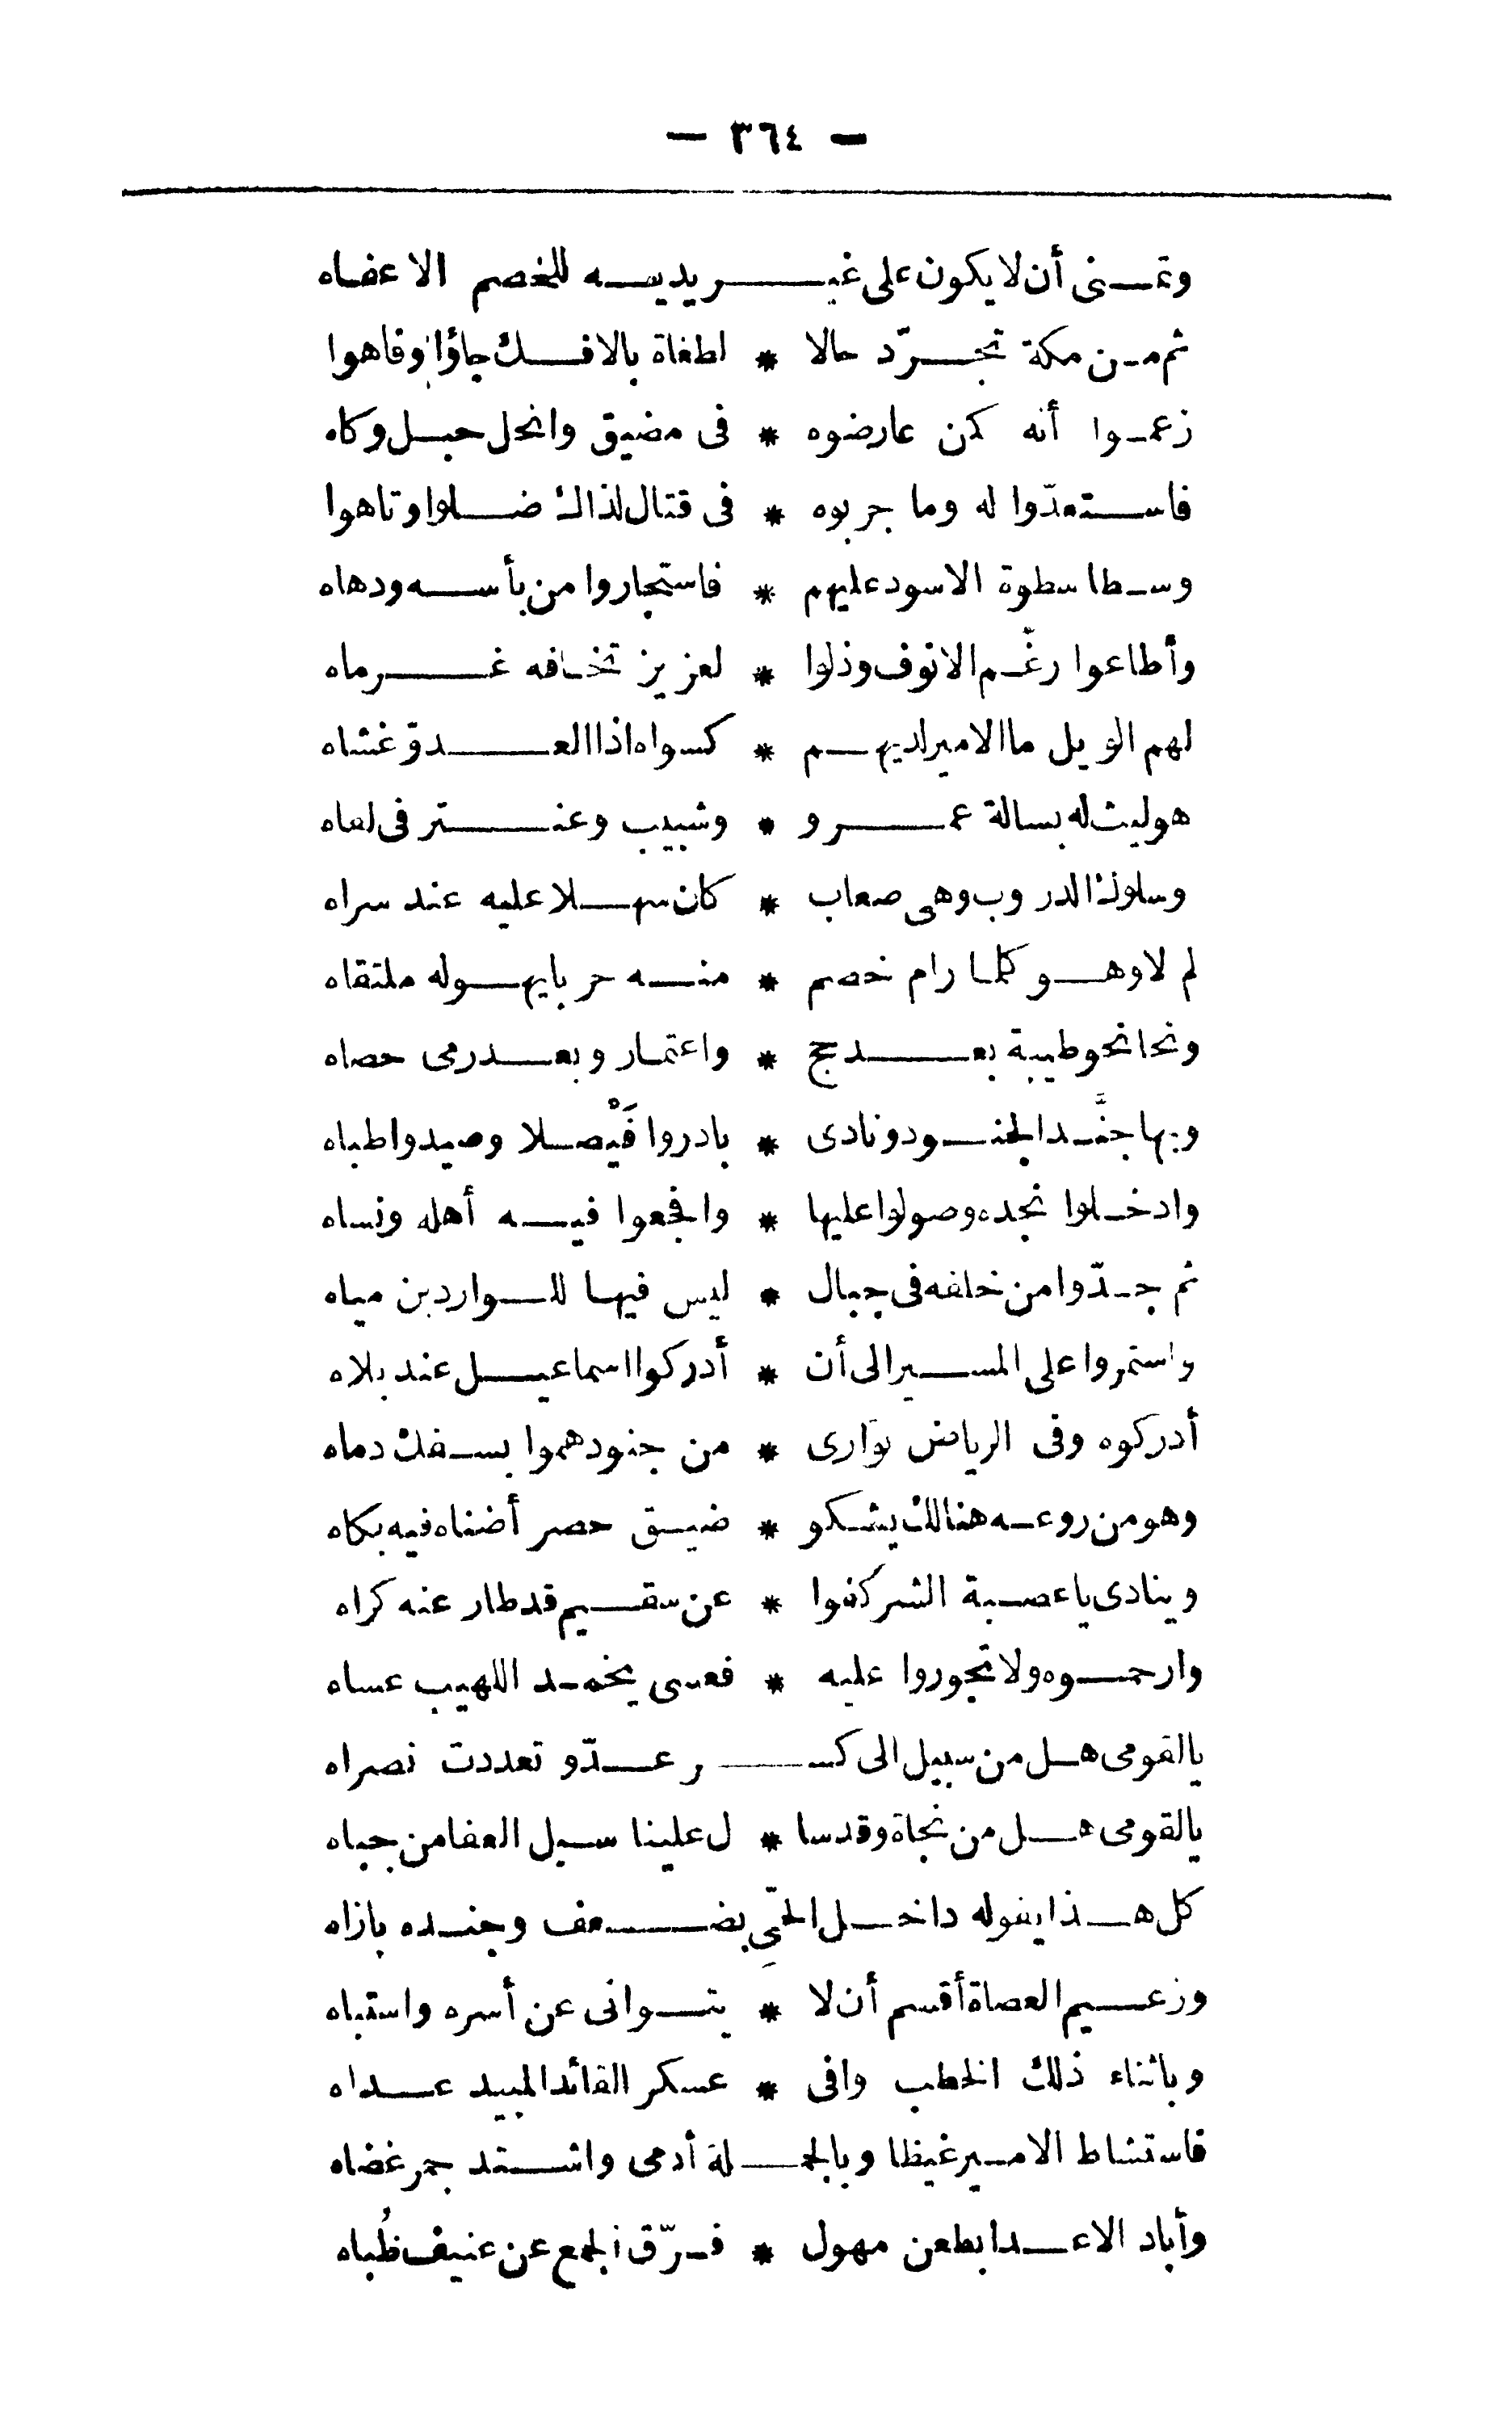 — ٣٦٤ —
وتمنى أن لا يكون على غير يديه للخصم الا عفاه
ثم من مكة تجرّد حالا * لطغاة بالافك جاؤا وفاهوا
زعموا أنه كمن عارضوه * فى مضيق وانحل حبل وكاه
فاستعدّوا له وما جربوه * فى قتال لذاك ضلوا وتاهوا
وسطا سطوة الاسود عليهم * فاستجاروا من بأسه ودهاه
وأطاعوا رغم الانوف وذلوا * لعزيز تخافه غرماه
لهم الويل ما الامير لديهم * كسواه اذا العدوّ غشاه
هو ليث له بسالة عمرو * وشبيب وعنتر فى لعاه
وسلوك الدروب وهى صعاب * كان سهلا عليه عند سراه
لم لا وهو كلما رام خصم * منه حربا يهوله ملتقاه
ونحا نحو طيبة بعد حج * واعتمار وبعد رمى حصاه
وبها جنَّد الجنود ونادى * بادروا فَيْصلا وصيدوا طباه
وادخلوا نجده وصولوا عليها * وافجعوا فيه أهله ونساه
ثم جدّوا من خلفه فى جبال * ليس فيها للواردين مياه
واستمروا على المسير الى أن * أدركوا اسماعيل عند بلاه
أدركوه وفى الرياض توارى * من جنود هموا بسفك دماه
وهو من روعه هنالك يشكو * ضيق حصر أضناه فيه بكاه
وينادى يا عصبة الشر كفوا * عن سقيم قد طار عنه كراه
وارحموه ولا تجوروا عليه * فعسى يخمد اللهيب عساه
يالقومى هل من سبيل الى كسر عدّو تعددت نصراه
يالقومى هل من نجاة وقد سا * ل علينا سيل العفا من جباه
كل هذا يقوله داخل الحىّ بضعف وجنده بازاه
وزعيم العصاة أقسم أن لا * يتوانى عن أسره واستباه
وباثناء ذلك الخطب وافى * عسكر القائد المبيد عداه
فاستشاط الامير غيظا وبالجملة أدمى واشتد جمر غضاه
وأباد الاعدا بطعن مهول * فرّق الجمع عن عنيف ظُباه